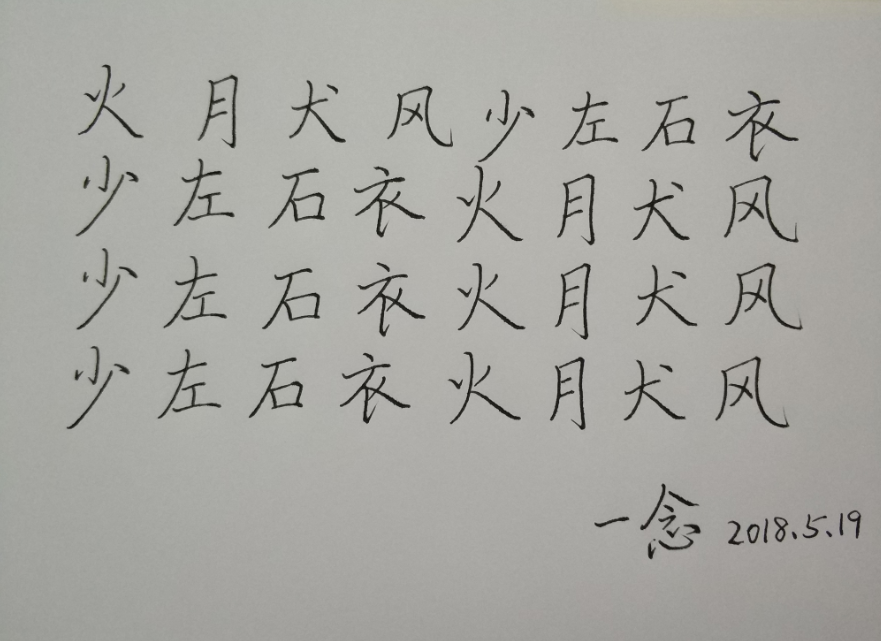 火月犬风少左石衣
少左石衣火月犬风
少左石衣火月犬风
少左石衣火月犬风
一念 2018.5.19